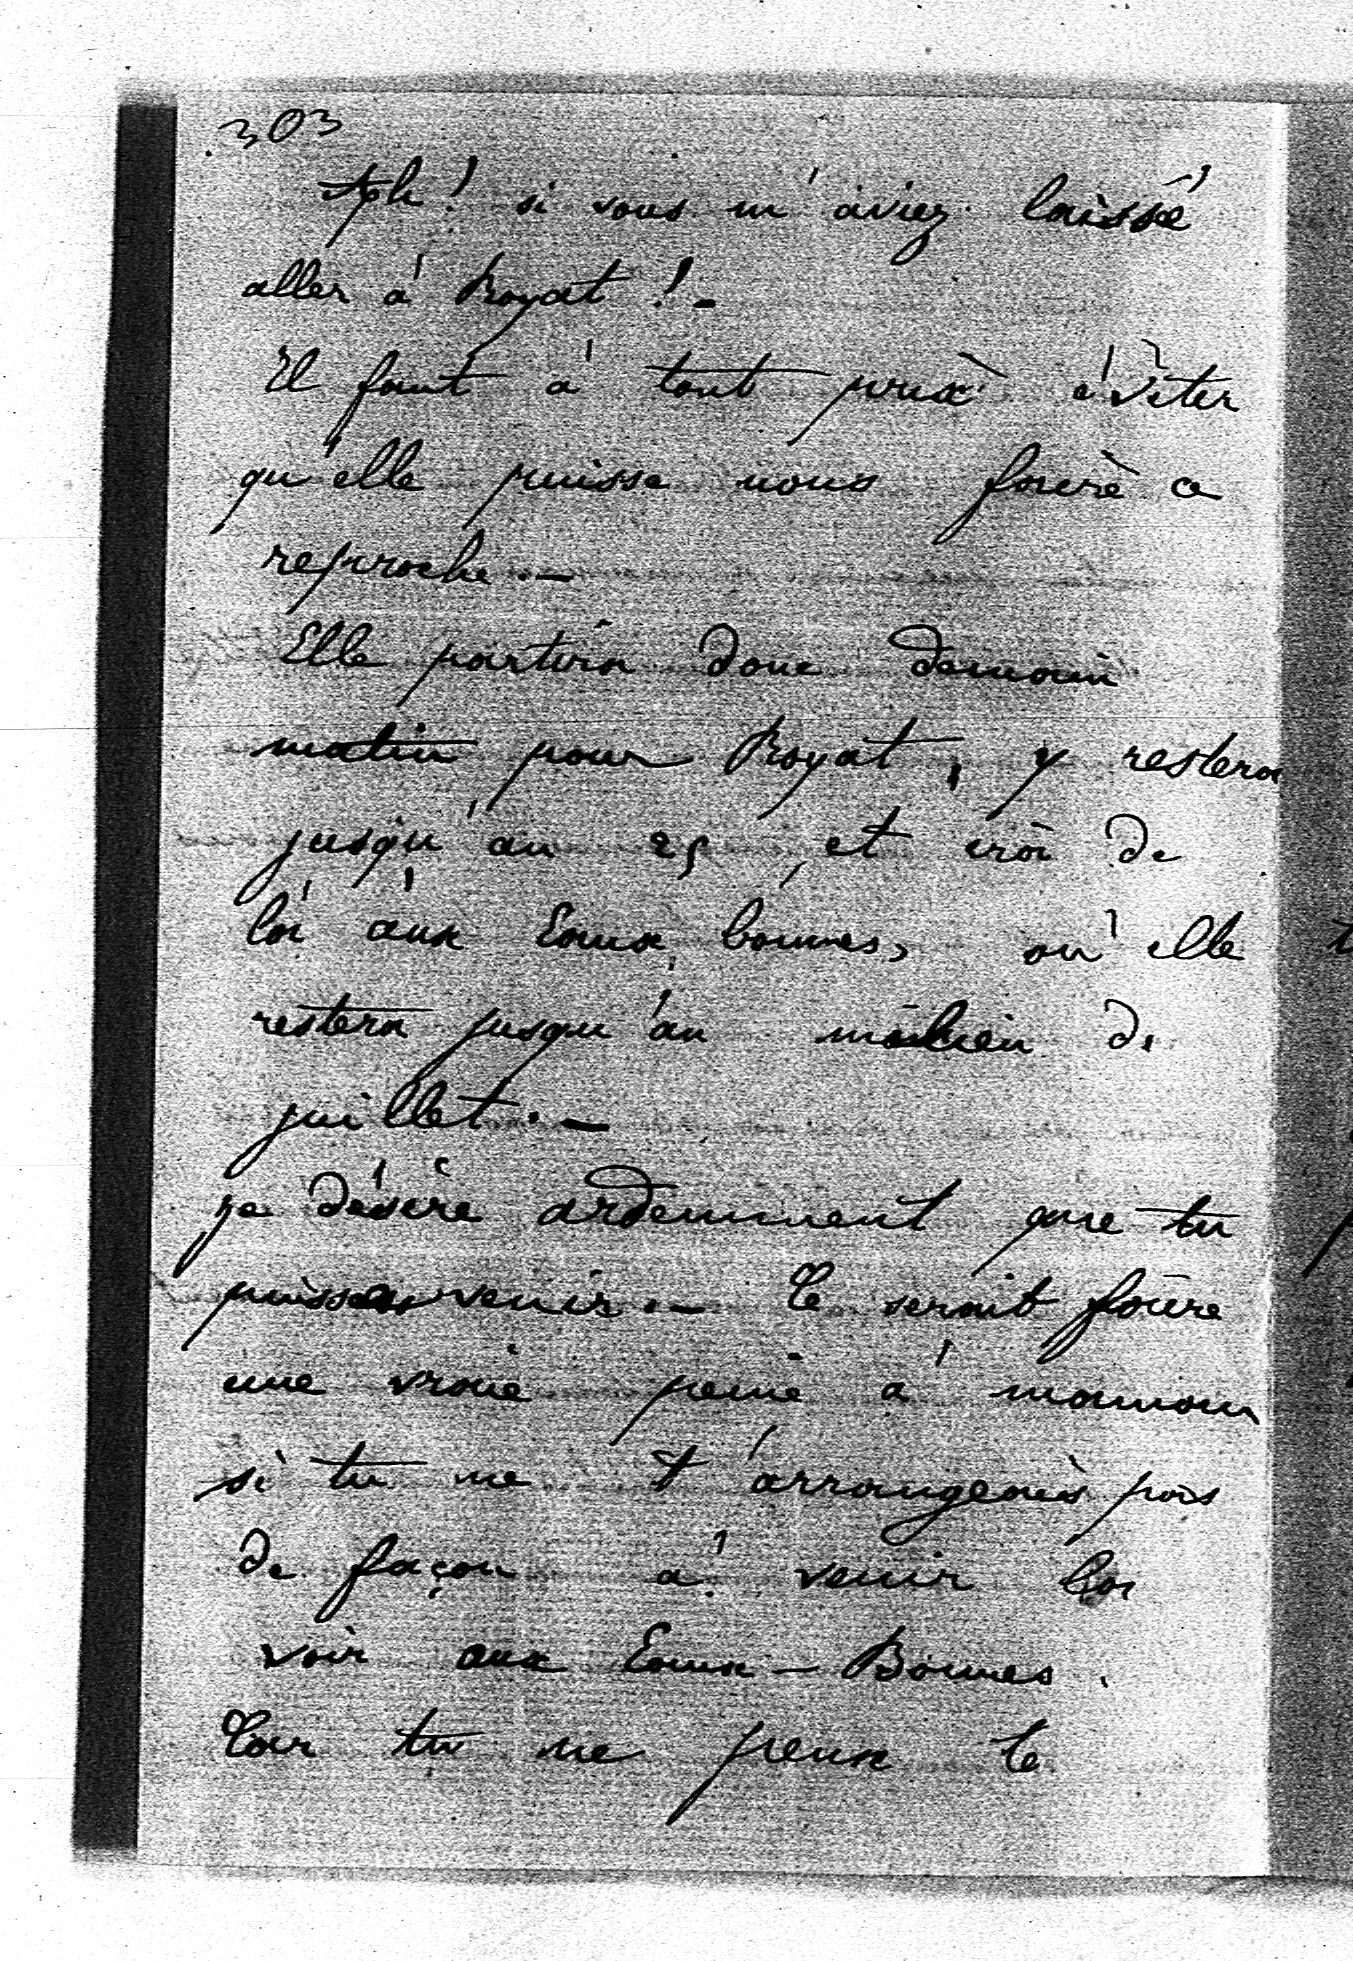 303
Ah ! si vous m'aviez laissé
aller à Royat ! -
Il faut à tout prix éviter
qu'elle puisse nous faire ce
reproche. -
Elle partira donc demain
matin pour Royat, y restera
jusqu'au 25, et ira de
là aux Eaux bonnes, où elle
restera jusqu'au milieu de
juillet. -
je désire ardemment que tu
puisses venir. - Ce serait faire
une vraie peine à maman
si tu ne t'arrangeais pas
de façon à venir la
voir aux Eaux-Bonnes.
Car tu ne peux te